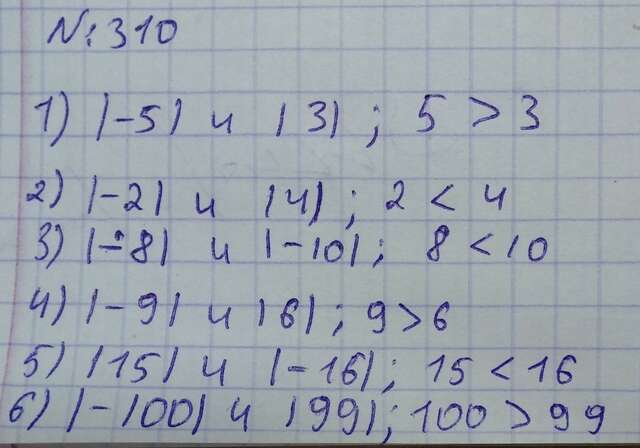 N:310
1) |-5| и |3|; 5 > 3
2) |-2| и |4|; 2 < 4
3) |-8| и |-10|; 8 < 10
4) |-9| и |6|; 9 > 6
5) |15| и |-16|; 15 < 16
6) |-100| и |99|; 100 > 99